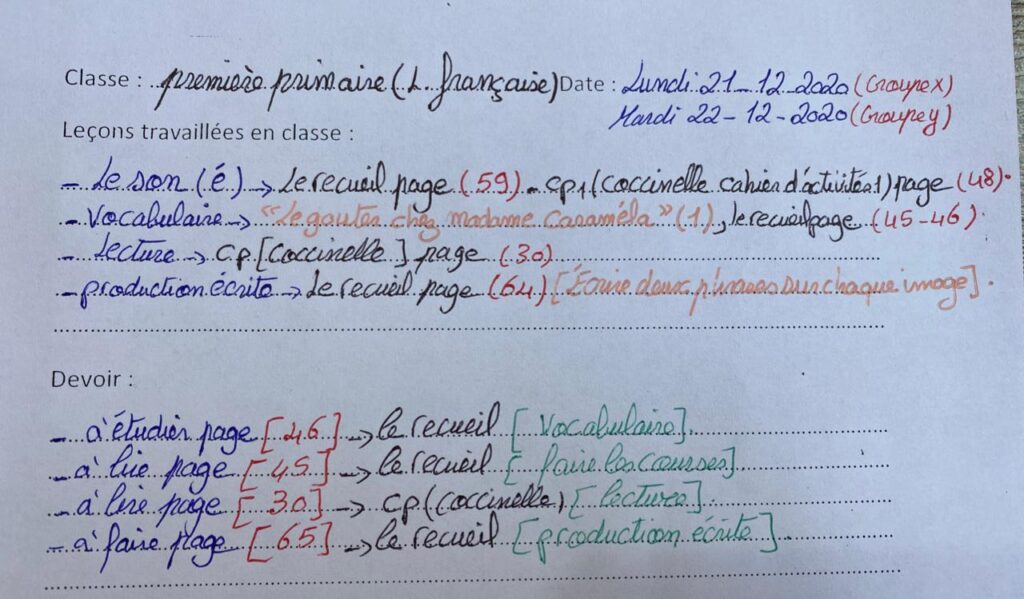 Classe : première primaire (L. française) Date : Lundi 21-12-2020 (Groupe x)
Mardi 22-12-2020 (Groupe y)
Leçons travaillées en classe :
- Le son (é) → Le recueil page (59) - cp1 (coccinelle cahier d'activités 1) page (48).
- Vocabulaire → "Le gouter chez madame Caraméla" (1), le recueil page (45-46).
- Lecture → cp [coccinelle] page (30)
- production écrite → Le recueil page (64) [Écrire deux phrases sur chaque image].
Devoir :
- à étudier page [46] → le recueil [Vocabulaire].
- à lire page [45] → le recueil [faire les courses].
- à lire page [30] → cp (coccinelle) [lecture].
- à faire page [65] → le recueil [production écrite].